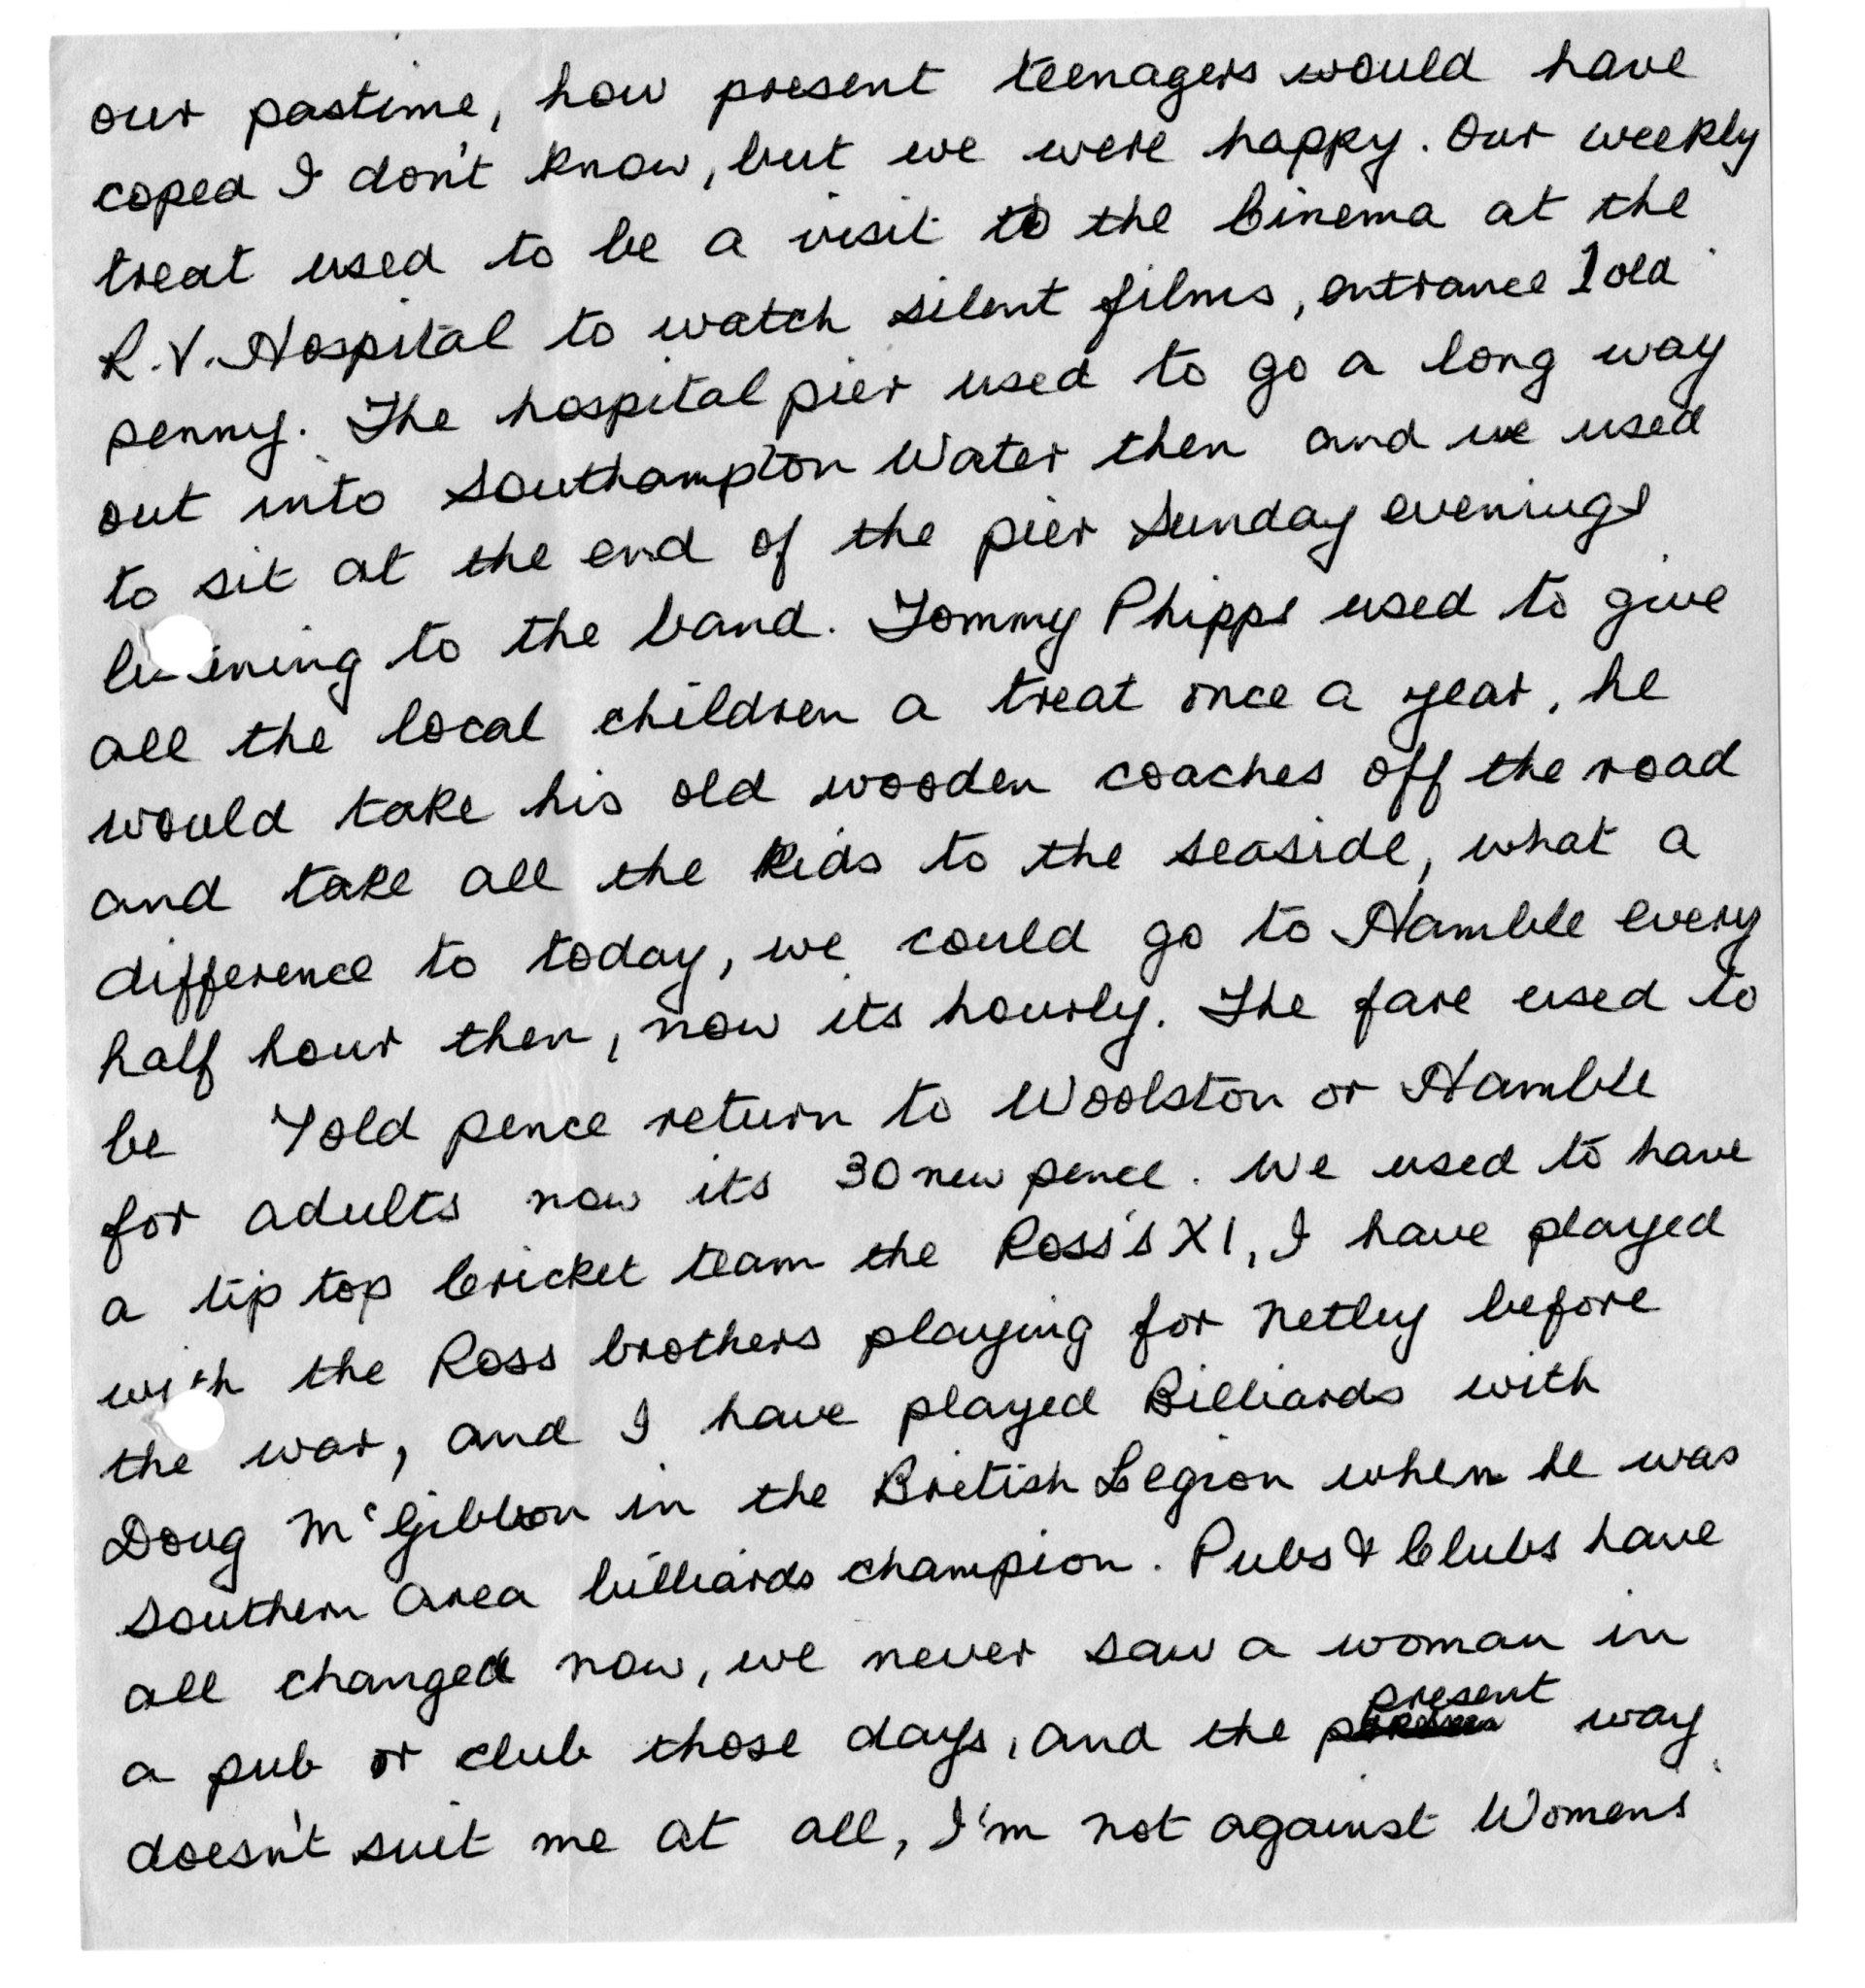 our pastime, how present teenagers would have
coped I don't know, but we were happy. Our weekly
treat used to be a visit to the Cinema at the
R.V. Hospital to watch silent films, entrance 1 old
penny. The hospital pier used to go a long way
out into Southampton Water then and we used
to sit at the end of the pier Sunday evenings
listening to the band. Tommy Phipps used to give
all the local children a treat once a year, he
would take his old wooden coaches off the road
and take all the kids to the seaside, what a
difference to today, we could go to Hamble every
half hour then, now its hourly. The fare used to
be 4 old pence return to Woolston or Hamble
for adults now its 30 new pence. We used to have
a tip top Cricket team the Ross's XI, I have played
with the Ross brothers playing for Netley before
the war, and I have played Billiards with
Doug McGibbon in the British Legion when he was
Southern Area billiards champion. Pubs & Clubs have
all changed now, we never saw a woman in
a pub or club those days, and the present way
doesn't suit me at all, I'm not against Womens